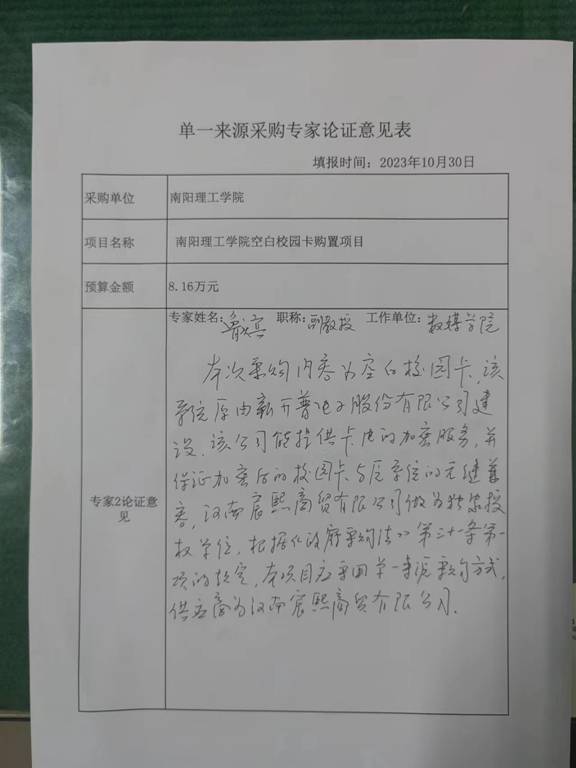 单一来源采购专家论证意见表
填报时间：2023年10月30日
采购单位 南阳理工学院
项目名称 南阳理工学院空白校园卡购置项目
预算金额 8.16万元
专家姓名： 职称：副教授 工作单位：数媒学院
专家2论证意见
本次采购内容为空白校园卡，该
系统原由新开普电子股份有限公司建
设，该公司能提供卡片的加密服务，并
保证加密后的校园卡与原系统的无缝兼
容，河南宸熙商贸有限公司做为独家授
权单位，根据《政府采购法》第三十一条第一
项的规定，本项目应采用单一来源采购方式，
供应商为河南宸熙商贸有限公司。